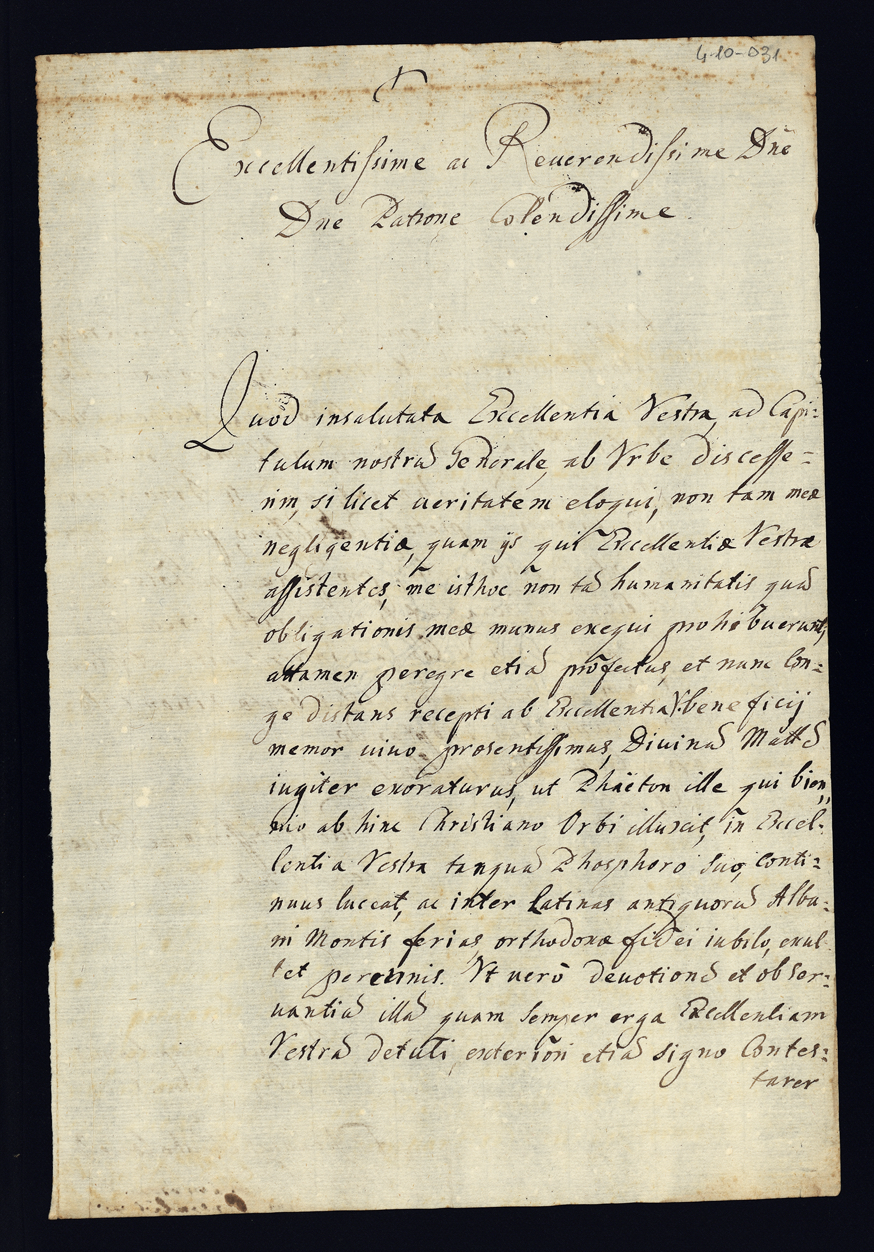 4-10-031
Excellentissime ac Reverendissime Dne
Dne Patrone Colendissime
Quod insalutata Excellentia Vestra, ad Capi=
tulum nostrũ Generale, ab Vrbe discesse=
rim, si licet veritatem eloqui, non tam meæ
negligentiæ, quam ijs qui Excellentiæ Vestræ
assistentes, me isthoc non tã humanitatis quã
obligationis meæ munus exequi prohibuerunt,
attamen peregre etiã profectus, et nunc lon=
ge distans recepti ab Excellentia V. beneficij
memor vivo præsentissimus, Divinã Mattẽ
iugiter exoraturus, ut Phaëton ille qui bien,,
nio ab hinc Christiano Orbi illuxit, in Excel=
lentia Vestra tanquã Phosphoro suo, conti=
nuus luceat, ac inter Latinas antiquorũ Alba=
ni Montis ferias, orthodoxæ fidei iubilo, exul
tet perennis. Vt verò devotionẽ et obser=
vantiã illã quam semper erga Excellentiam
Vestrã detuli exteriori etiã signo contes=
tarer